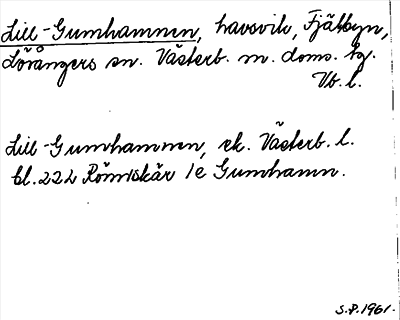 Lill-Gumhamnen, havsvik, Fjälbyn,
Lövångers sn. Västerb. m. doms. tg.
Vb. l.
Lill-Gumhamnen, ek. Västerb. l.
bl. 222 Römskär 1e Gumhamn.
S.P. 1961.